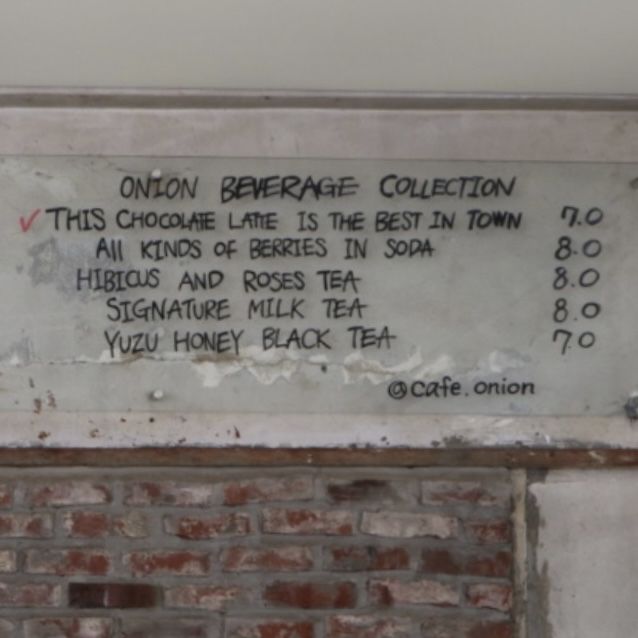 ONION BEVERAGE COLLECTION
✓ THIS CHOCOLATE LATTE IS THE BEST IN TOWN 7.0
All KINDS OF BERRIES IN SODA 8.0
HIBICUS AND ROSES TEA 8.0
SIGNATURE MILK TEA 8.0
YUZU HONEY BLACK TEA 7.0
@cafe.onion